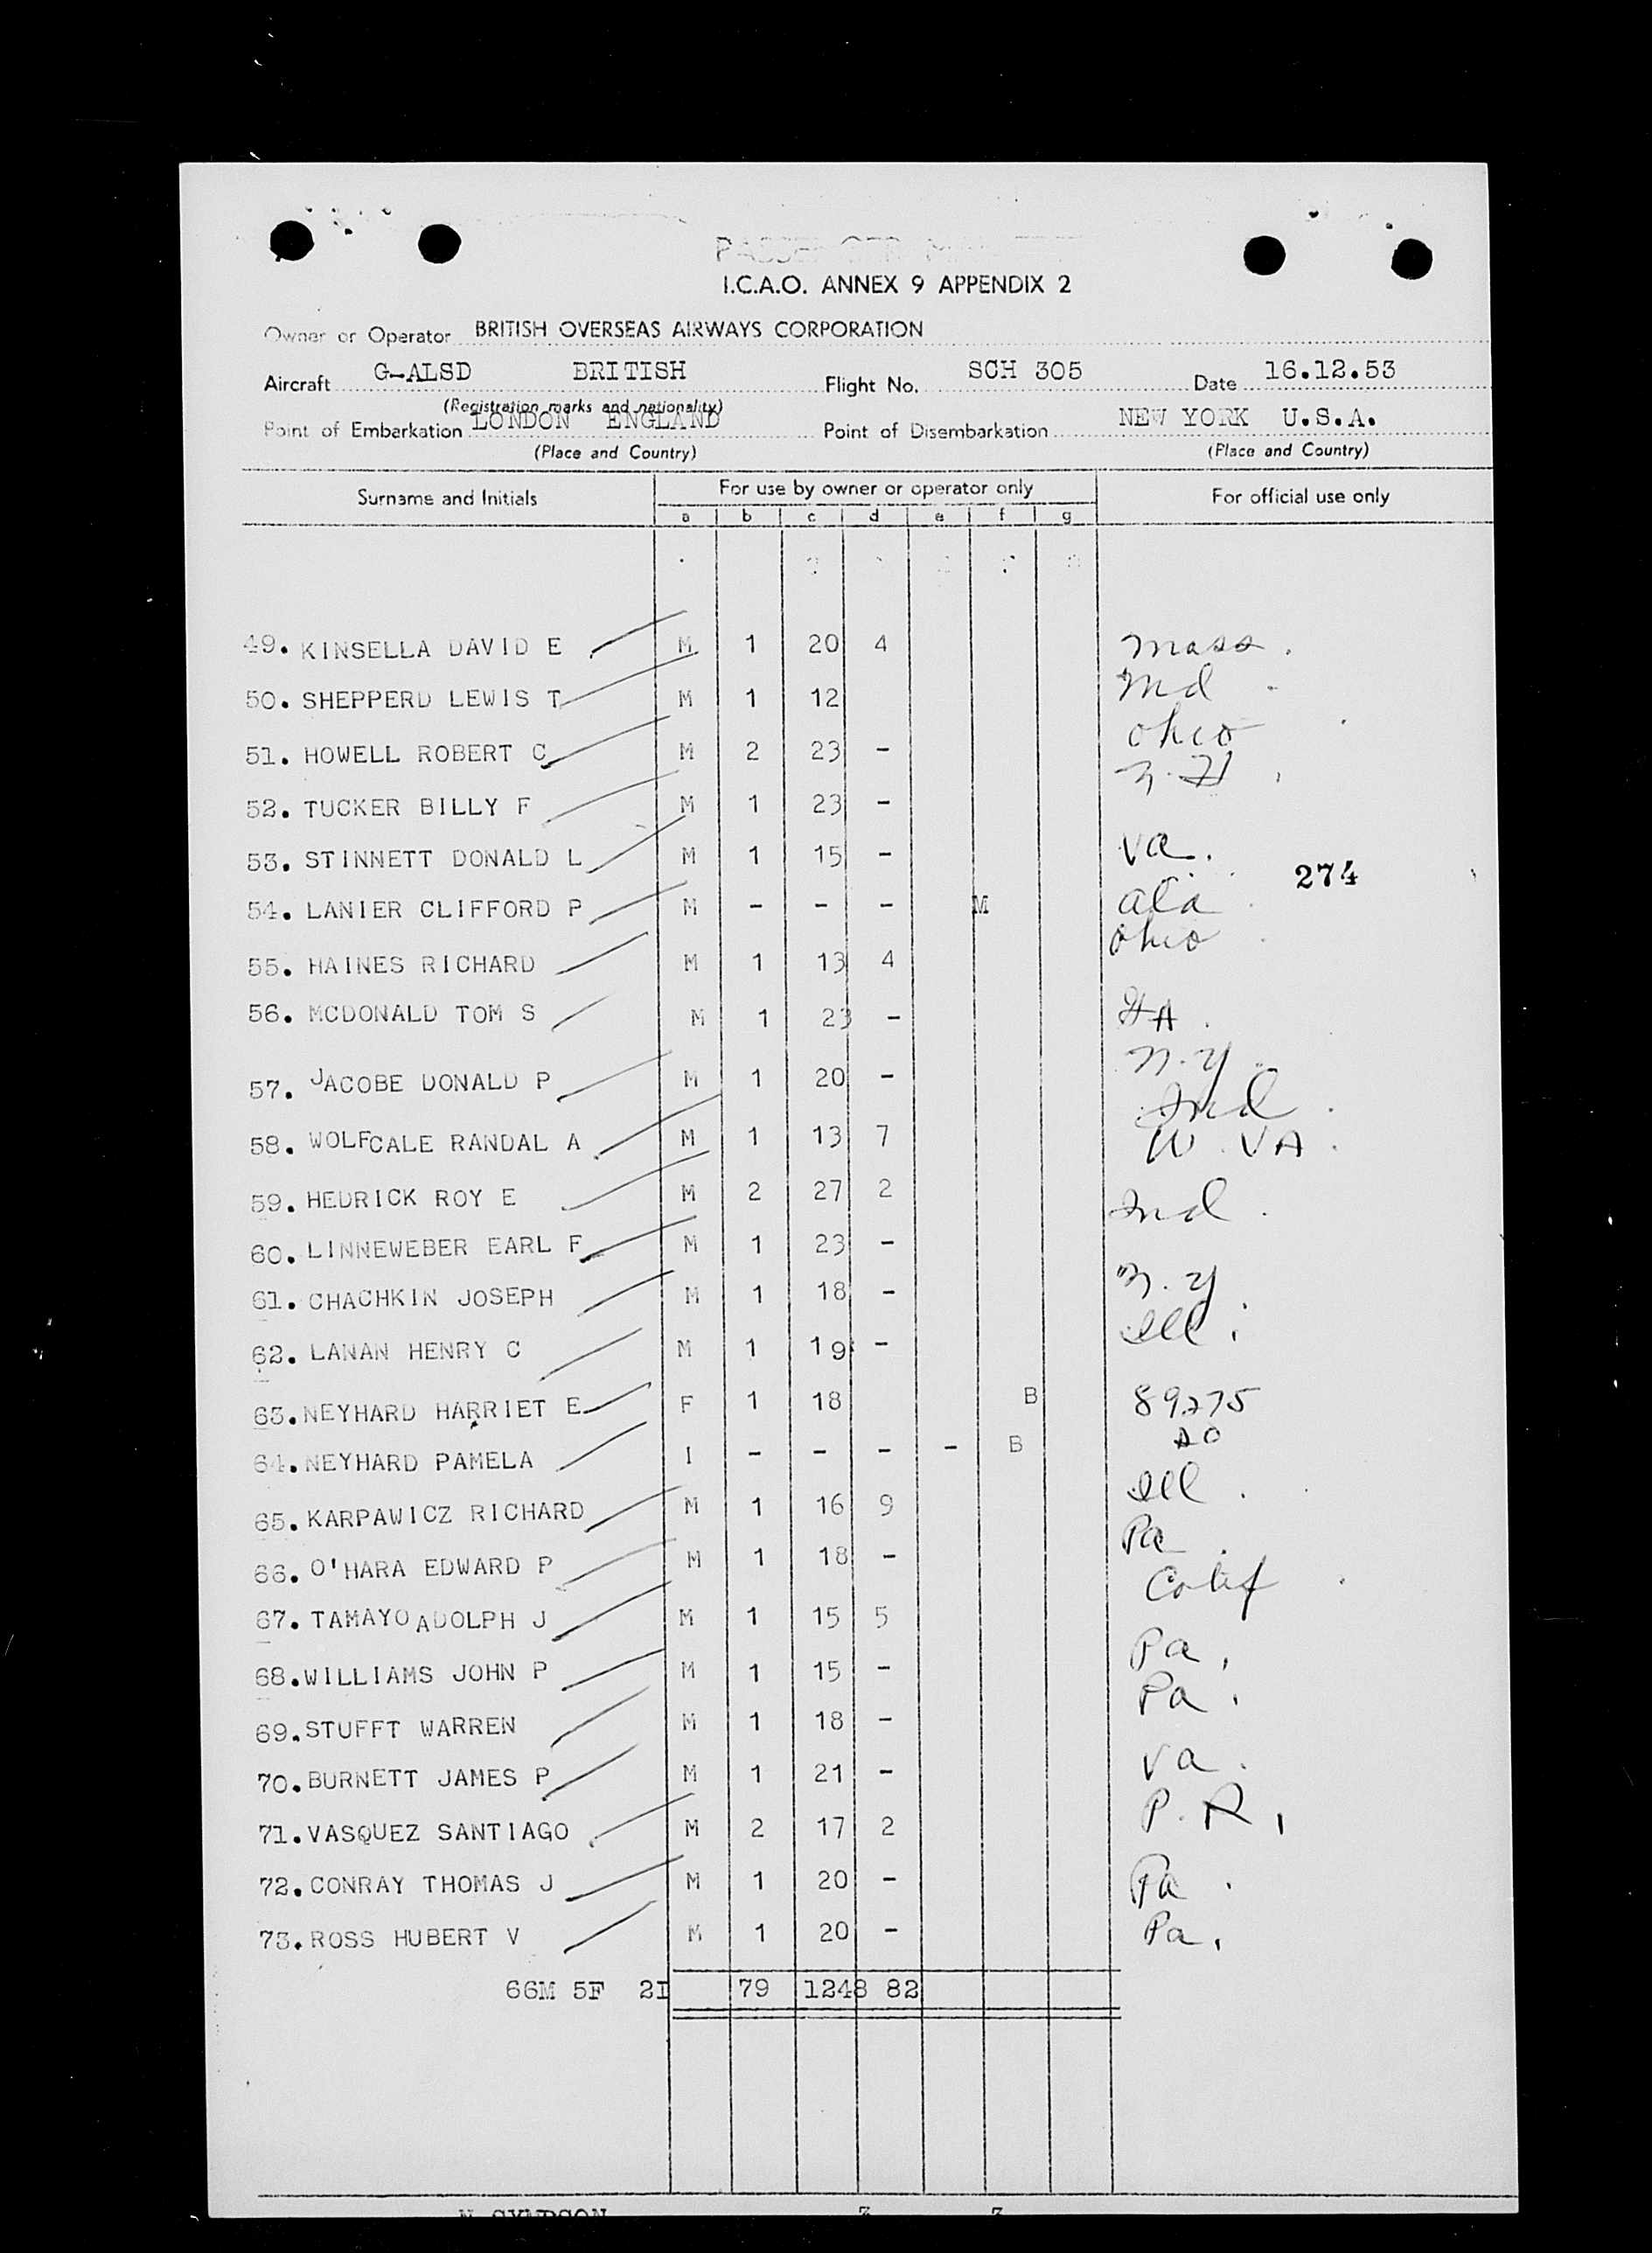 PASSENGER MANIFEST
I.C.A.O. ANNEX 9 APPENDIX 2
Owner or Operator BRITISH OVERSEAS AIRWAYS CORPORATION
Aircraft G-ALSD BRITISH Flight No. SCH 305 Date 16.12.53
(Registration marks and nationality)
Point of Embarkation LONDON ENGLAND Point of Disembarkation NEW YORK U.S.A.
(Place and Country) (Place and Country)
Surname and Initials For use by owner or operator only For official use only
a b c d e f g
49. KINSELLA DAVID E M 1 20 4 Mass.
50. SHEPPERD LEWIS T M 1 12 Md
51. HOWELL ROBERT C M 2 23 - Ohio
52. TUCKER BILLY F M 1 23 -
53. STINNETT DONALD L M 1 15 - Va.
274
54. LANIER CLIFFORD P M - - - M Ala
55. HAINES RICHARD M 1 13 4 Ohio
56. MCDONALD TOM S M 1 23 -
57. JACOBE DONALD P M 1 20 - N.Y.
Ind
58. WOLFCALE RANDAL A M 1 13 7 W. VA.
59. HEDRICK ROY E M 2 27 2 Ind.
60. LINNEWEBER EARL F M 1 23 -
61. CHACHKIN JOSEPH M 1 18 - N.Y
62. LANAN HENRY C M 1 19 - Ill.
63. NEYHARD HARRIET E F 1 18 B 89275
64. NEYHARD PAMELA I - - - - B DO
65. KARPAWICZ RICHARD M 1 16 9 Ill.
66. O'HARA EDWARD P M 1 18 - Pa.
67. TAMAYO ADOLPH J M 1 15 5 Calif
68. WILLIAMS JOHN P M 1 15 - Pa.
69. STUFFT WARREN M 1 18 - Pa.
70. BURNETT JAMES P M 1 21 - Va.
71. VASQUEZ SANTIAGO M 2 17 2 P.R.
72. CONRAY THOMAS J M 1 20 - Pa.
73. ROSS HUBERT V M 1 20 - Pa.
66M 5F 2I 79 1248 82